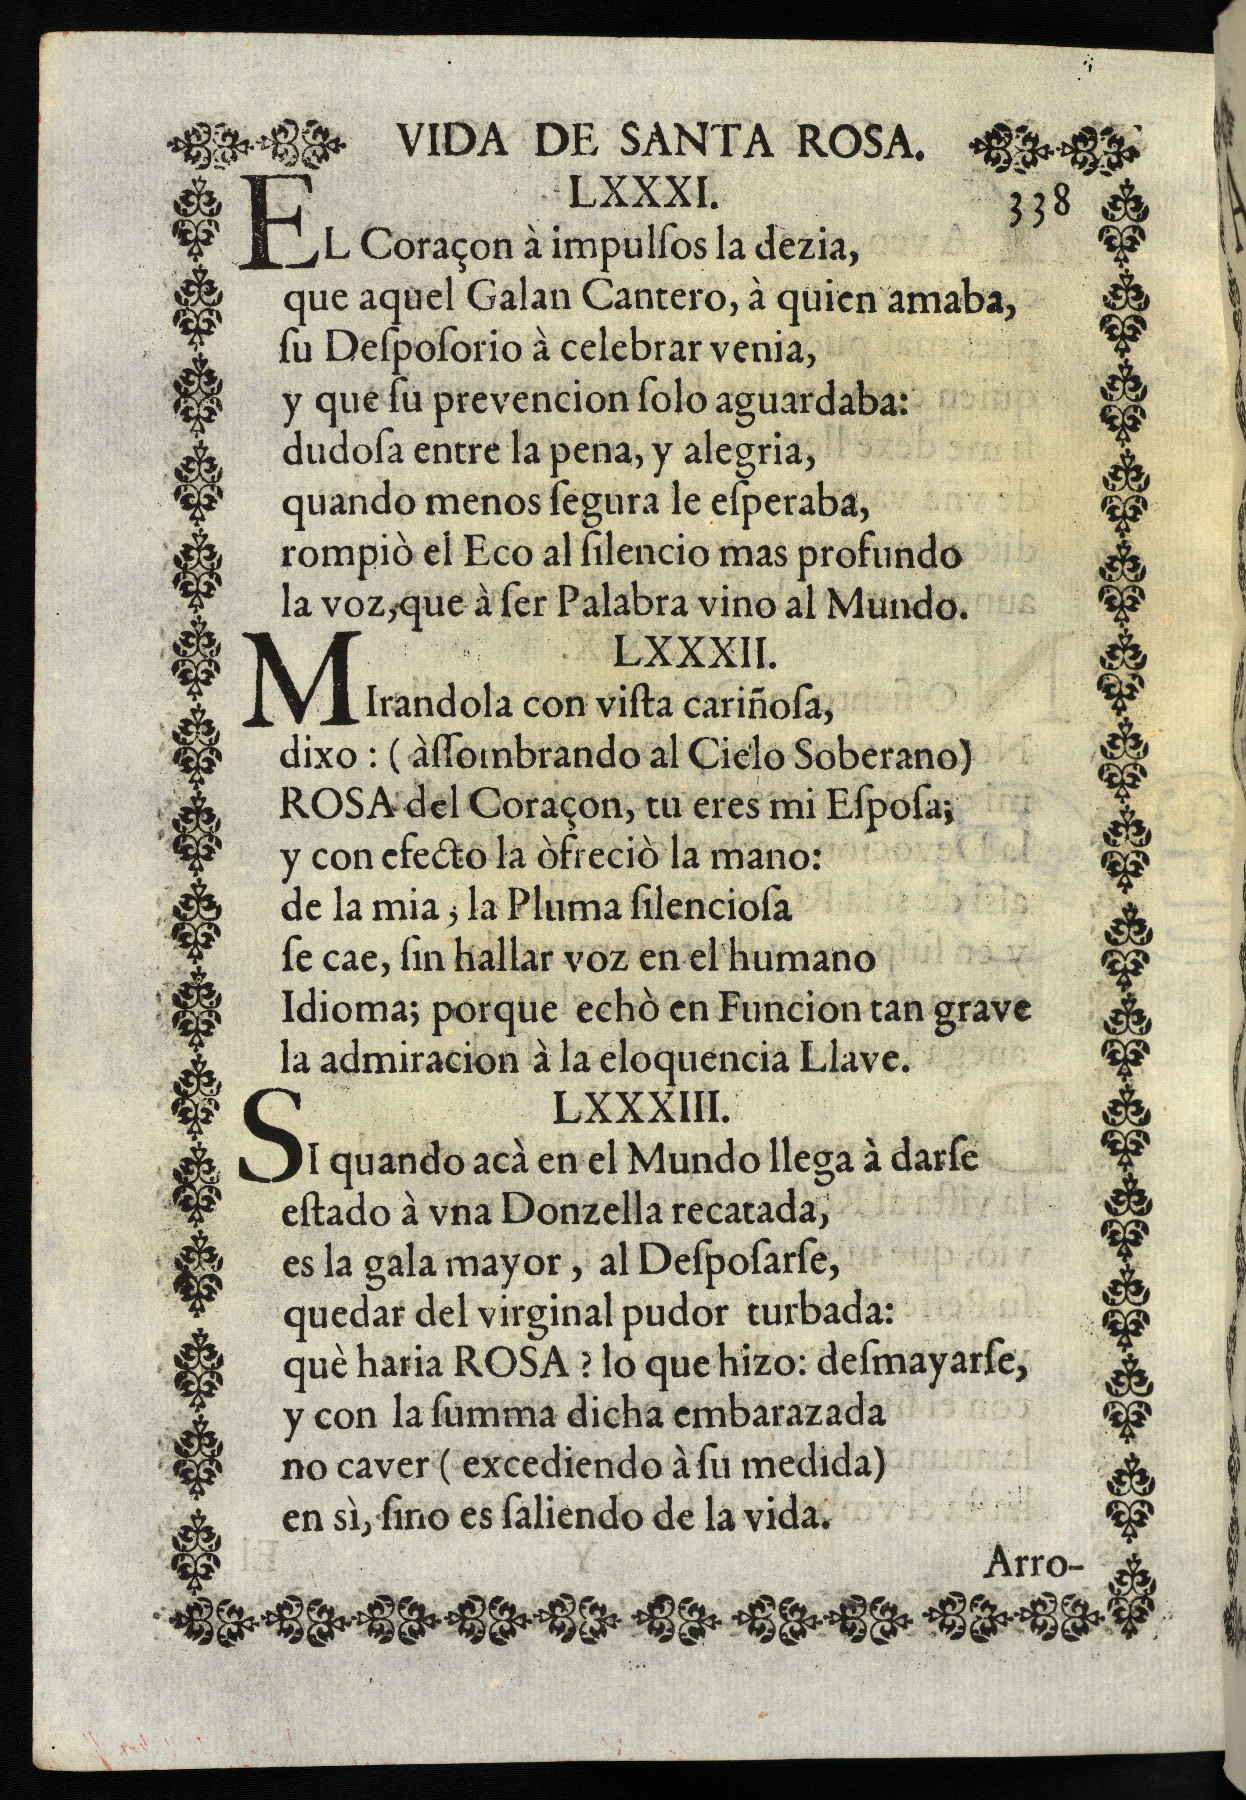 VIDA DE SANTA ROSA.
LXXXI.
338
EL Coraçon à impulſos la dezia,
que aquel Galan Cantero, à quien amaba,
ſu Deſpoſorio à celebrar venia,
y que ſu prevencion ſolo aguardaba:
dudoſa entre la pena, y alegria,
quando menos ſegura le eſperaba,
rompiò el Eco al ſilencio mas profundo
la voz, que à ſer Palabra vino al Mundo.
LXXXII.
MIrandola con viſta cariñoſa,
dixo : ( àſſombrando al Cielo Soberano)
ROSA del Coraçon, tu eres mi Eſpoſa;
y con efecto la òfreciò la mano:
de la mia ; la Pluma ſilencioſa
ſe cae, ſin hallar voz en el humano
Idioma; porque echò en Funcion tan grave
la admiracion à la eloquencia Llave.
LXXXIII.
SI quando acà en el Mundo llega à darſe
eſtado à vna Donzella recatada,
es la gala mayor , al Deſpoſarſe,
quedar del virginal pudor turbada:
què haria ROSA ? lo que hizo: deſmayarſe,
y con la ſumma dicha embarazada
no caver ( excediendo à ſu medida)
en sì, ſino es ſaliendo de la vida.
Arro-